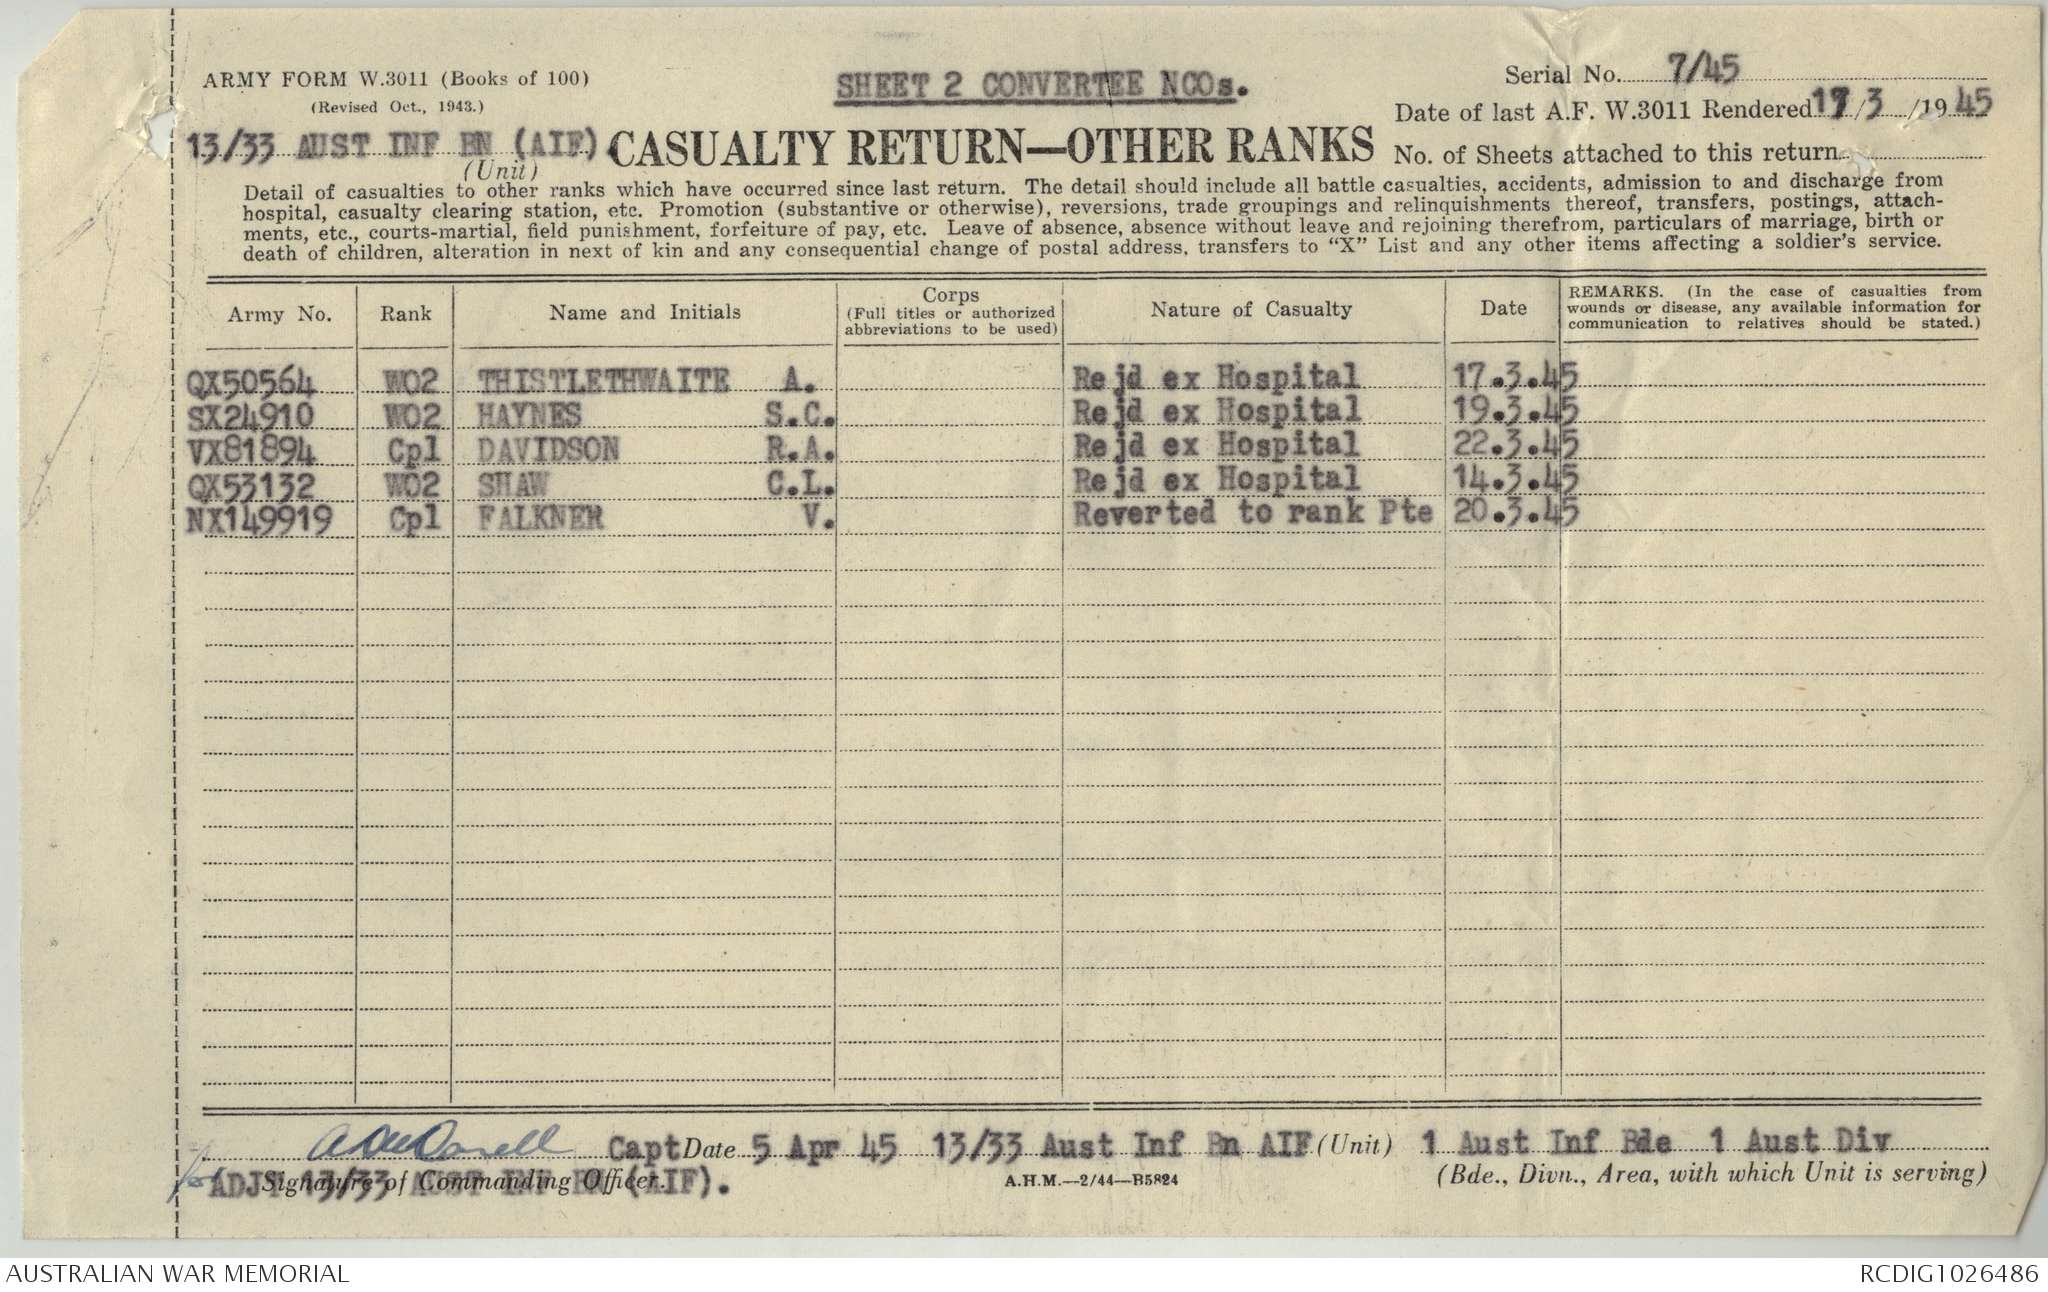 ARMY FORM W.3011 (Books of 100)
(Revised Oct., 1943.)
SHEET 2 CONVERTEE NCOs.
Serial No. 7/45
Date of last A.F. W.3011 Rendered /3/1945
13/33 AUST INF BN (AIF)
(Unit)
CASUALTY RETURN—OTHER RANKS
No. of Sheets attached to this return
Detail of casualties to other ranks which have occurred since last return. The detail should include all battle casualties, accidents, admission to and discharge from
hospital, casualty clearing station, etc. Promotion (substantive or otherwise), reversions, trade groupings and relinquishments thereof, transfers, postings, attach-
ments, etc., courts-martial, field punishment, forfeiture of pay, etc. Leave of absence, absence without leave and rejoining therefrom, particulars of marriage, birth or
death of children, alteration in next of kin and any consequential change of postal address, transfers to "X" List and any other items affecting a soldier's service.
Army No. Rank Name and Initials Corps (Full titles or authorized abbreviations to be used) Nature of Casualty Date REMARKS. (In the case of casualties from wounds or disease, any available information for communication to relatives should be stated.)
QX50564 WO2 THISTLETHWAITE A. Rejd ex Hospital 17.3.45
SX24910 WO2 HAYNES S.C. Rejd ex Hospital 19.3.45
VX81894 Cpl DAVIDSON R.A. Rejd ex Hospital 22.3.45
QX53132 WO2 SHAW C.L. Rejd ex Hospital 14.3.45
NX149919 Cpl FALKNER V. Reverted to rank Pte 20.3.45
Capt Date 5 Apr 45 13/33 Aust Inf Bn AIF (Unit) 1 Aust Inf Bde 1 Aust Div
ADJT 13/33 AUST INF BN (AIF).
Signature of Commanding Officer.
A.H.M.—2/44—B5824
(Bde., Divn., Area, with which Unit is serving)
AUSTRALIAN WAR MEMORIAL
RCDIG1026486